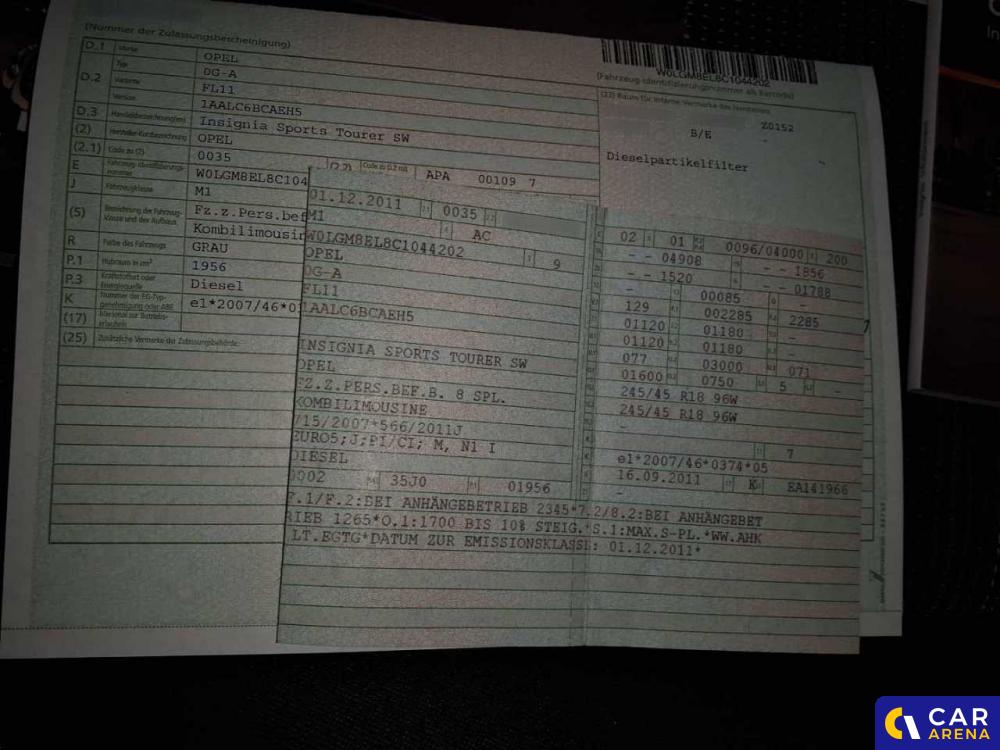 (Nummer der Zulassungsbescheinigung)
W0LGM8EL8C1044202
(Fahrzeug-Identifizierungsnummer als Barcode)
D.1 Marke OPEL
D.2 Typ 0G-A
Variante FL11
Version 1AALC6BCAEH5
D.3 Handelsbezeichnung(en) Insignia Sports Tourer SW
(2) Hersteller-Kurzbezeichnung OPEL
(2.1) Code zu (2) 0035
(2.2) Code zu D.2 mit APA 00109 7
E Fahrzeug-Identifizierungs-
nummer W0LGM8EL8C104
J Fahrzeugklasse M1
(5) Bezeichnung der Fahrzeug-
klasse und des Aufbaus Fz.z.Pers.bef
Kombilimousin
R Farbe des Fahrzeugs GRAU
P.1 Hubraum in cm³ 1956
P.3 Kraftstoffart oder
Energiequelle Diesel
K Nummer der EG-Typ-
genehmigung oder ABE e1*2007/46*03
(17) Merkmal zur Betriebs-
erlaubnis
(25) Zusätzliche Vermerke der Zulassungsbehörde:
(22) Raum für interne Vermerke des Herstellers
Z0152
B/E
Dieselpartikelfilter
01.12.2011 0035
M1 AC
W0LGM8EL8C1044202 9
OPEL
0G-A
FL11
1AALC6BCAEH5
INSIGNIA SPORTS TOURER SW
OPEL
FZ.Z.PERS.BEF.B. 8 SPL.
KOMBILIMOUSINE
/15/2007*566/2011J
EURO5;J;PI/CI; M, N1 I
DIESEL
0002 35J0 01956
02 01 0096/04000 200
- - 04908 - - 1856
- - 1520 - - 01788
- 00085 -
129 002285 2285
01120 01180 -
01120 01180 -
077 03000 071
01600 0750 5
245/45 R18 96W
245/45 R18 96W
-
7
e1*2007/46*0374*05
16.09.2011 K EA141966
-
F.1/F.2:BEI ANHÄNGEBETRIEB 2345*7.2/8.2:BEI ANHÄNGEBET
RIEB 1265*O.1:1700 BIS 10% STEIG.*S.1:MAX.S-PL.*WW.AHK
LT.EGTG*DATUM ZUR EMISSIONSKLASSE: 01.12.2011*
CAR
ARENA